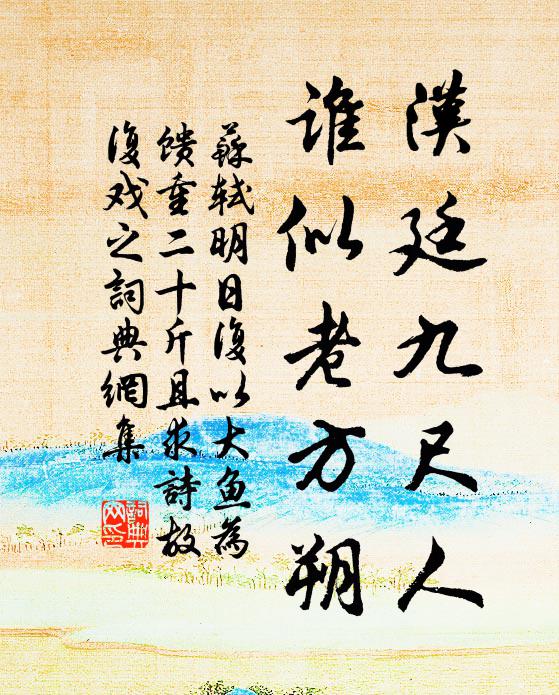 漢廷九尺人
誰似老方朔
蘇軾明日復以大魚為
饋重二十斤且求詩故
復戏之詞典網集
詞典
网印